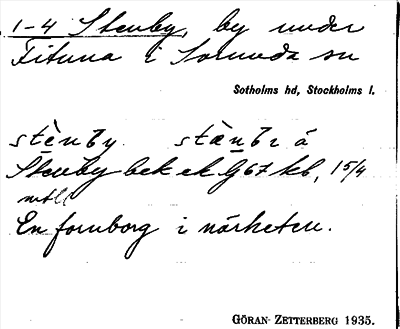 1-4 Stenby, by under
Fituna i Sorunda sn
Sotholms hd, Stockholms l.
stènby. stæ̀nbʀ á
Stenby bek ek G 67 kb, 15/4
mtl
En fornborg i närheten.
GÖRAN ZETTERBERG 1935.